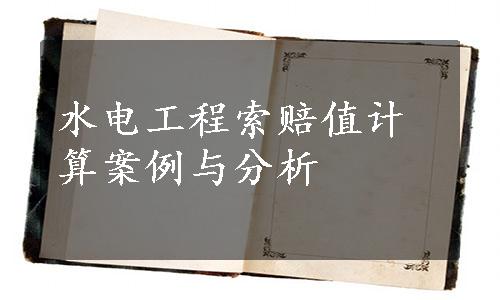 水电工程索赔值计
算案例与分析